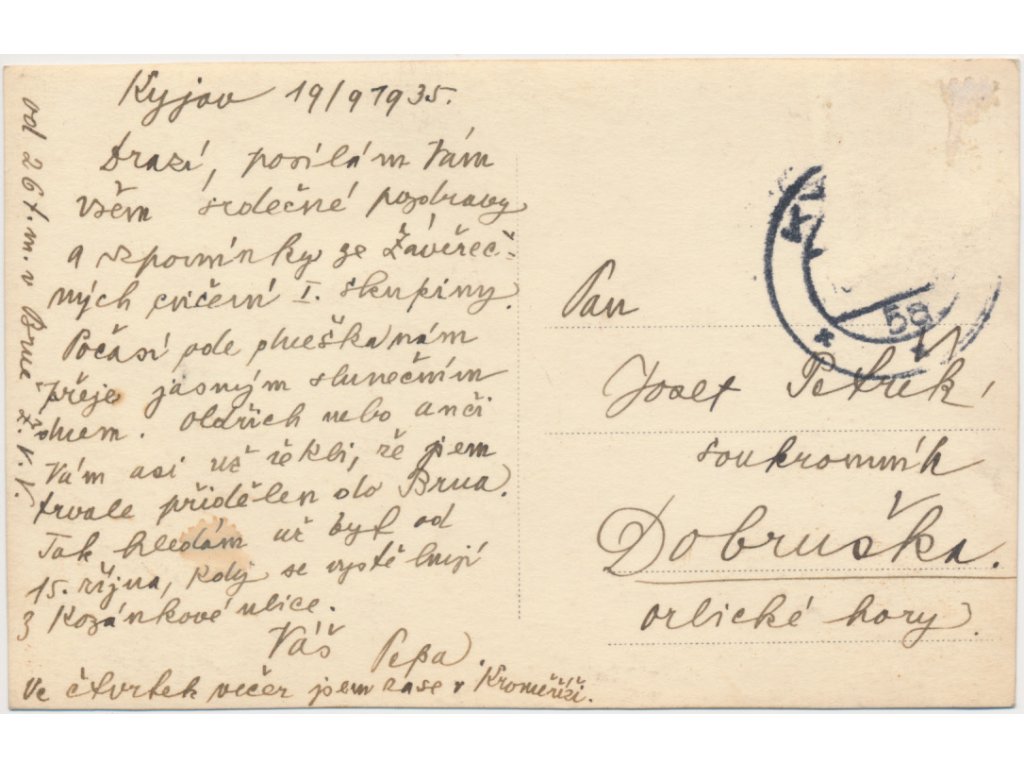 Kyjov 19/9 1935.
Drazí, posílám Vám
všem srdečné pozdravy
a vzpomínky ze Závěreč-
ných cvičení I. skupiny.
Počasí ode dneška nám
přeje jasným slunečním
dnem. Oldřich nebo Anči
Vám asi už řekli, že jsem
trvale přidělen do Brna.
Tak hledám už byt od
15. října, kdy se vystěhuji
z Kozánkové ulice.
Váš Pepa.
Ve čtvrtek večer jsem zase v Kroměříži.
od 26 t. m. v Brně Z. V. V.
Pan
Josef Petřek,
soukromník
Dobruška.
Orlické hory.
58